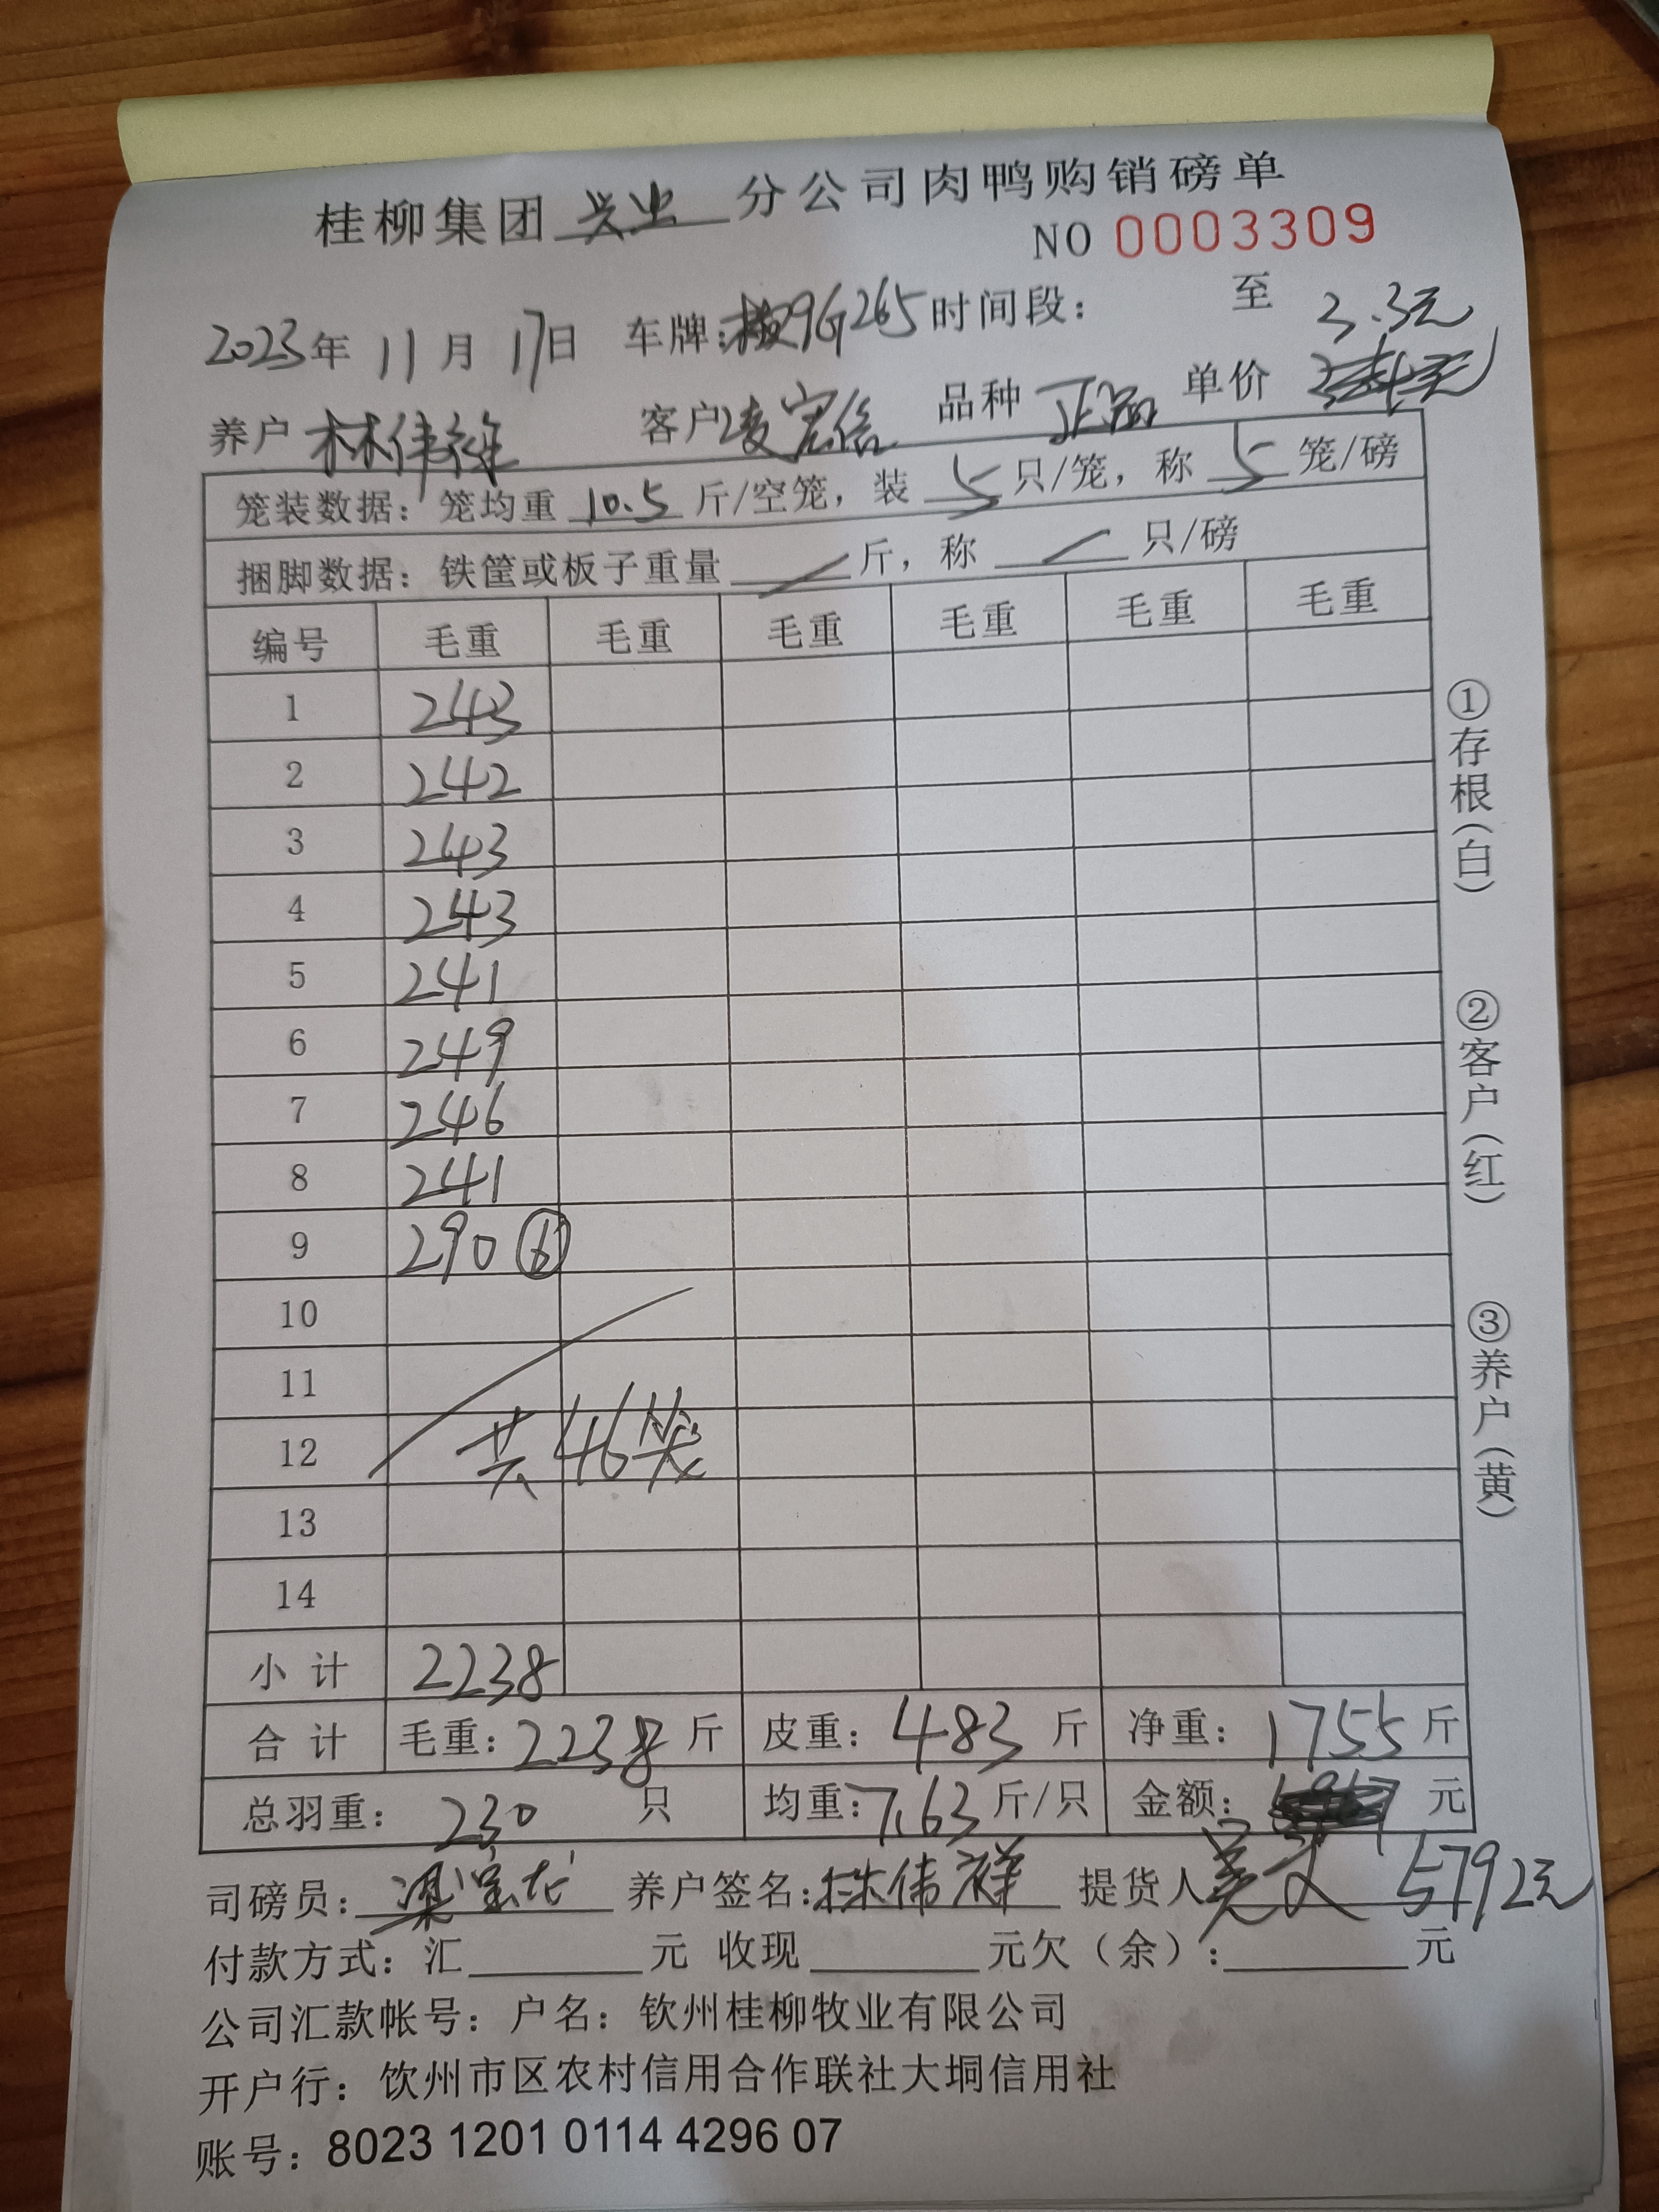 桂柳集团 兴业 分公司肉鸭购销磅单
NO 0003309
2023年 11月 17日 车牌:桂9G265 时间段: 至 3.3元
养户 林伟祥 客户 凌宏信 品种 正品 单价
笼装数据: 笼均重 10.5 斤/空笼, 装 5 只/笼, 称 5 笼/磅
捆脚数据: 铁筐或板子重量 / 斤, 称 / 只/磅
编号 毛重 毛重 毛重 毛重 毛重 毛重
1 243
2 242
3 243
4 243
5 241
6 249
7 246
8 241
9 290 ⑥
10
11
12 共46笼
13
14
小计 2238
合计 毛重: 2238 斤 皮重: 483 斤 净重: 1755 斤
总羽重: 230 只 均重: 7.63 斤/只 金额: 元
司磅员: 梁宝龙 养户签名: 林伟祥 提货人 5792元
付款方式: 汇 元 收现 元欠(余): 元
公司汇款帐号: 户名: 钦州桂柳牧业有限公司
开户行: 钦州市区农村信用合作联社大垌信用社
账号: 8023 1201 0114 4296 07
①存根(白)
②客户(红)
③养户(黄)